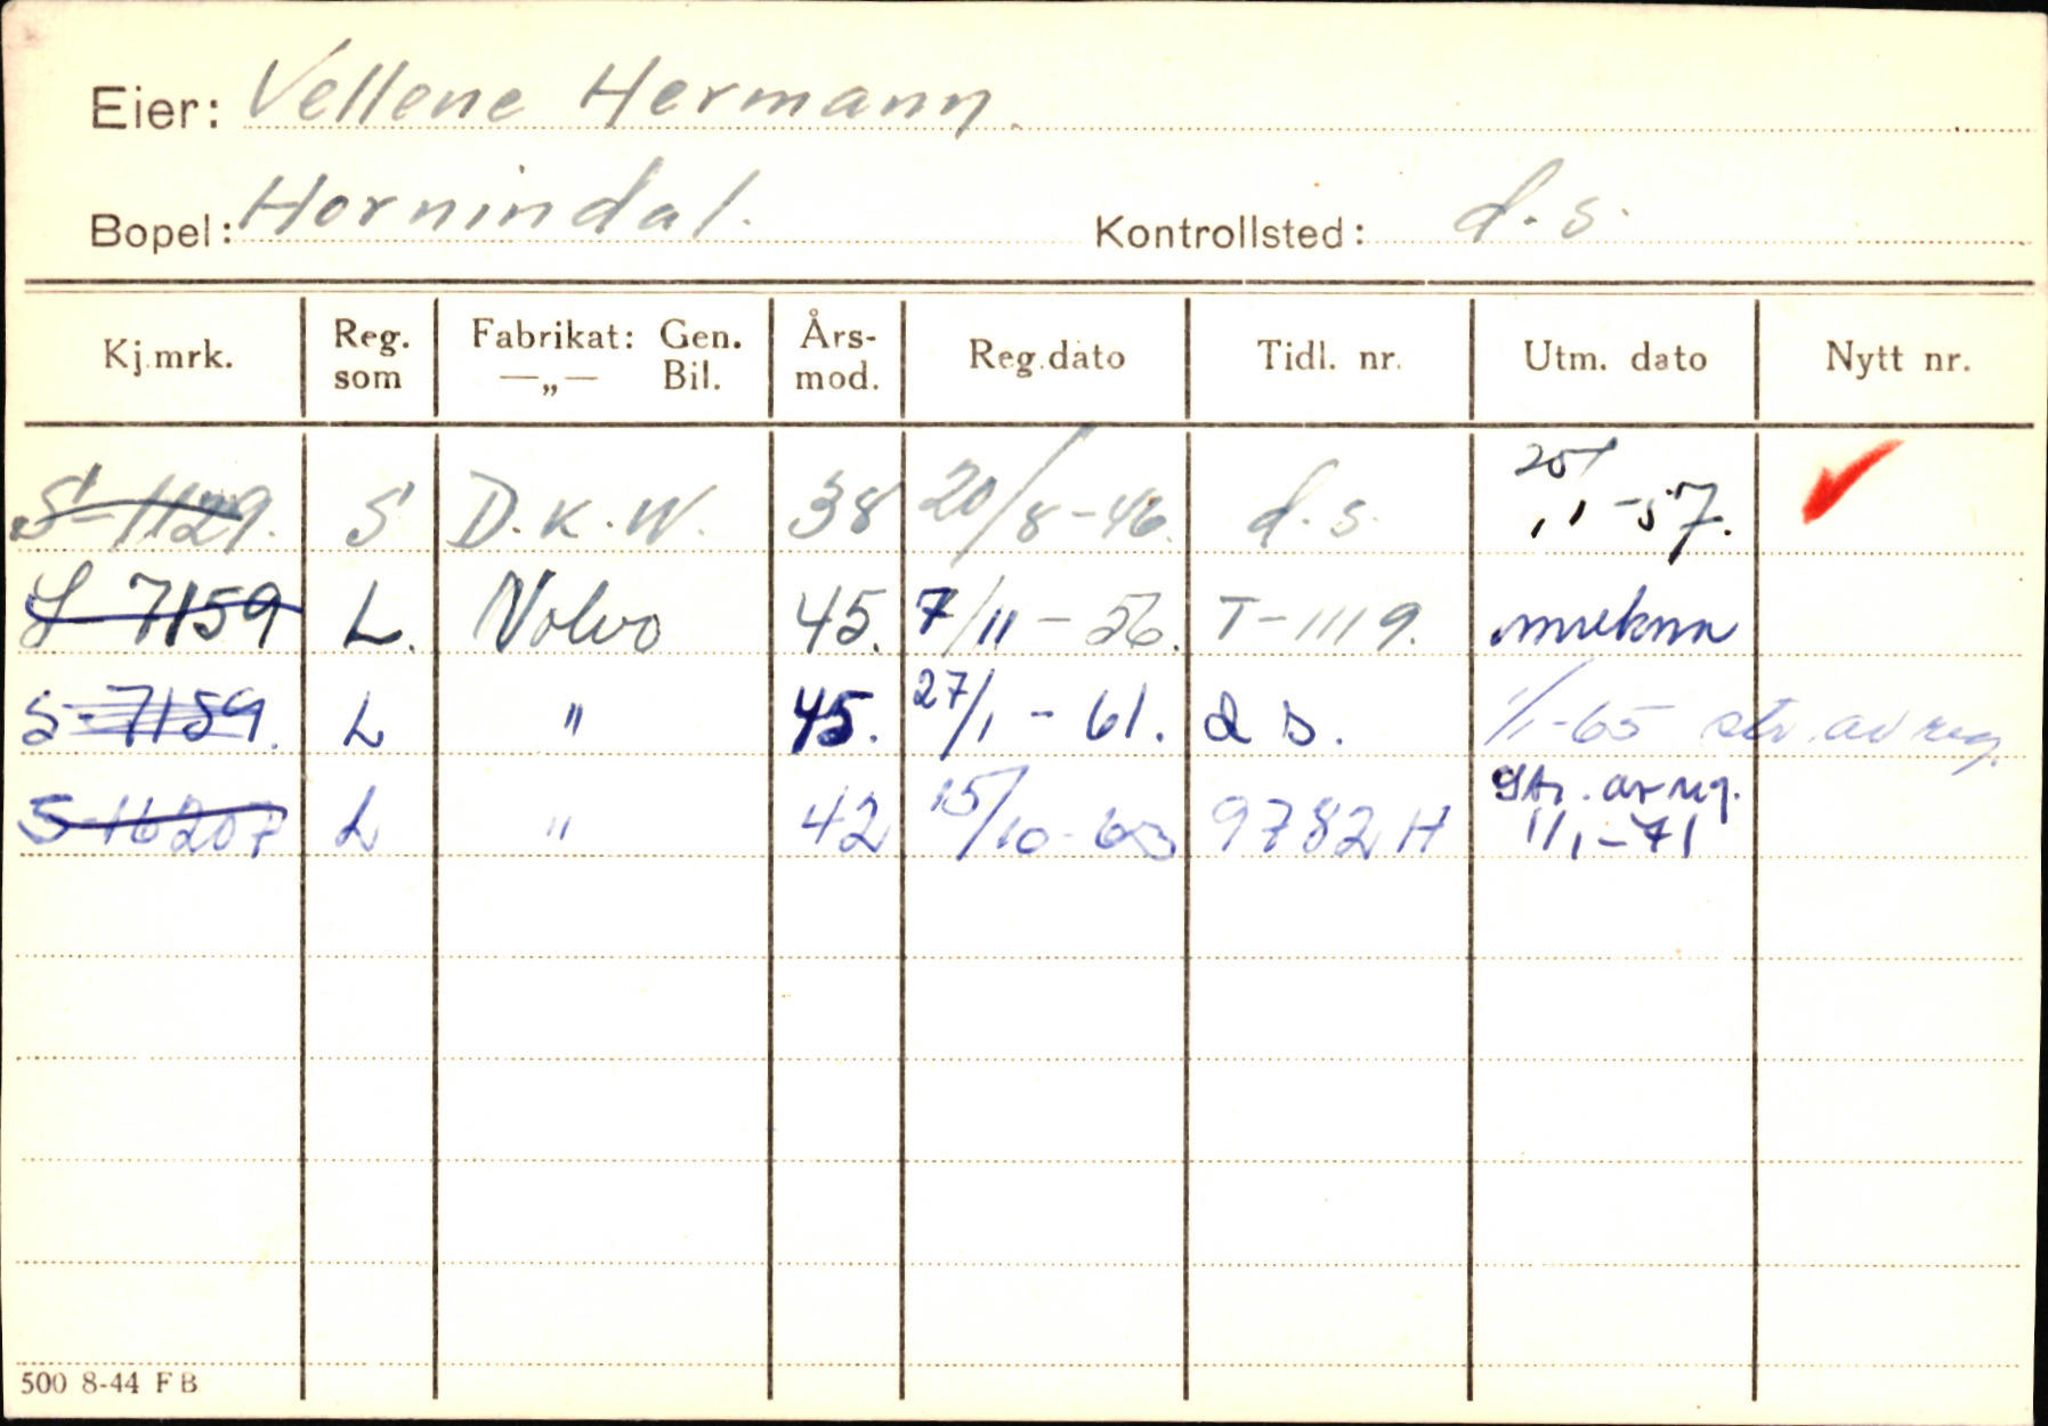 Eier: Vellene Hermann.
Bopel: Hornindal. Kontrollsted: d.s.
Kj.mrk. Reg. som Fabrikat: Gen. —„— Bil. Års- mod. Reg.dato Tidl. nr. Utm. dato Nytt nr.
S-1129. S D.K.W. 38 20/8-46. d.s. 25/1-57.
S 7159 L. Volvo 45. 7/11-56. T-1119.
S-7159. L " 45. 27/1-61. d s. 1/1-65 str. av reg.
S-16207 L " 42 15/10-63 9782 H Str. av reg. 1/1-71
500 8-44 F B